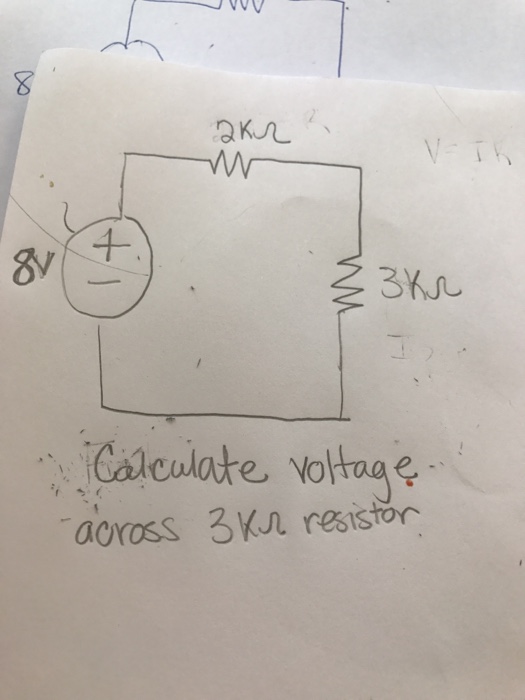 8
2KΩ
V=IR
8V
+
−
3KΩ
I
Calculate voltage
across 3KΩ resistor